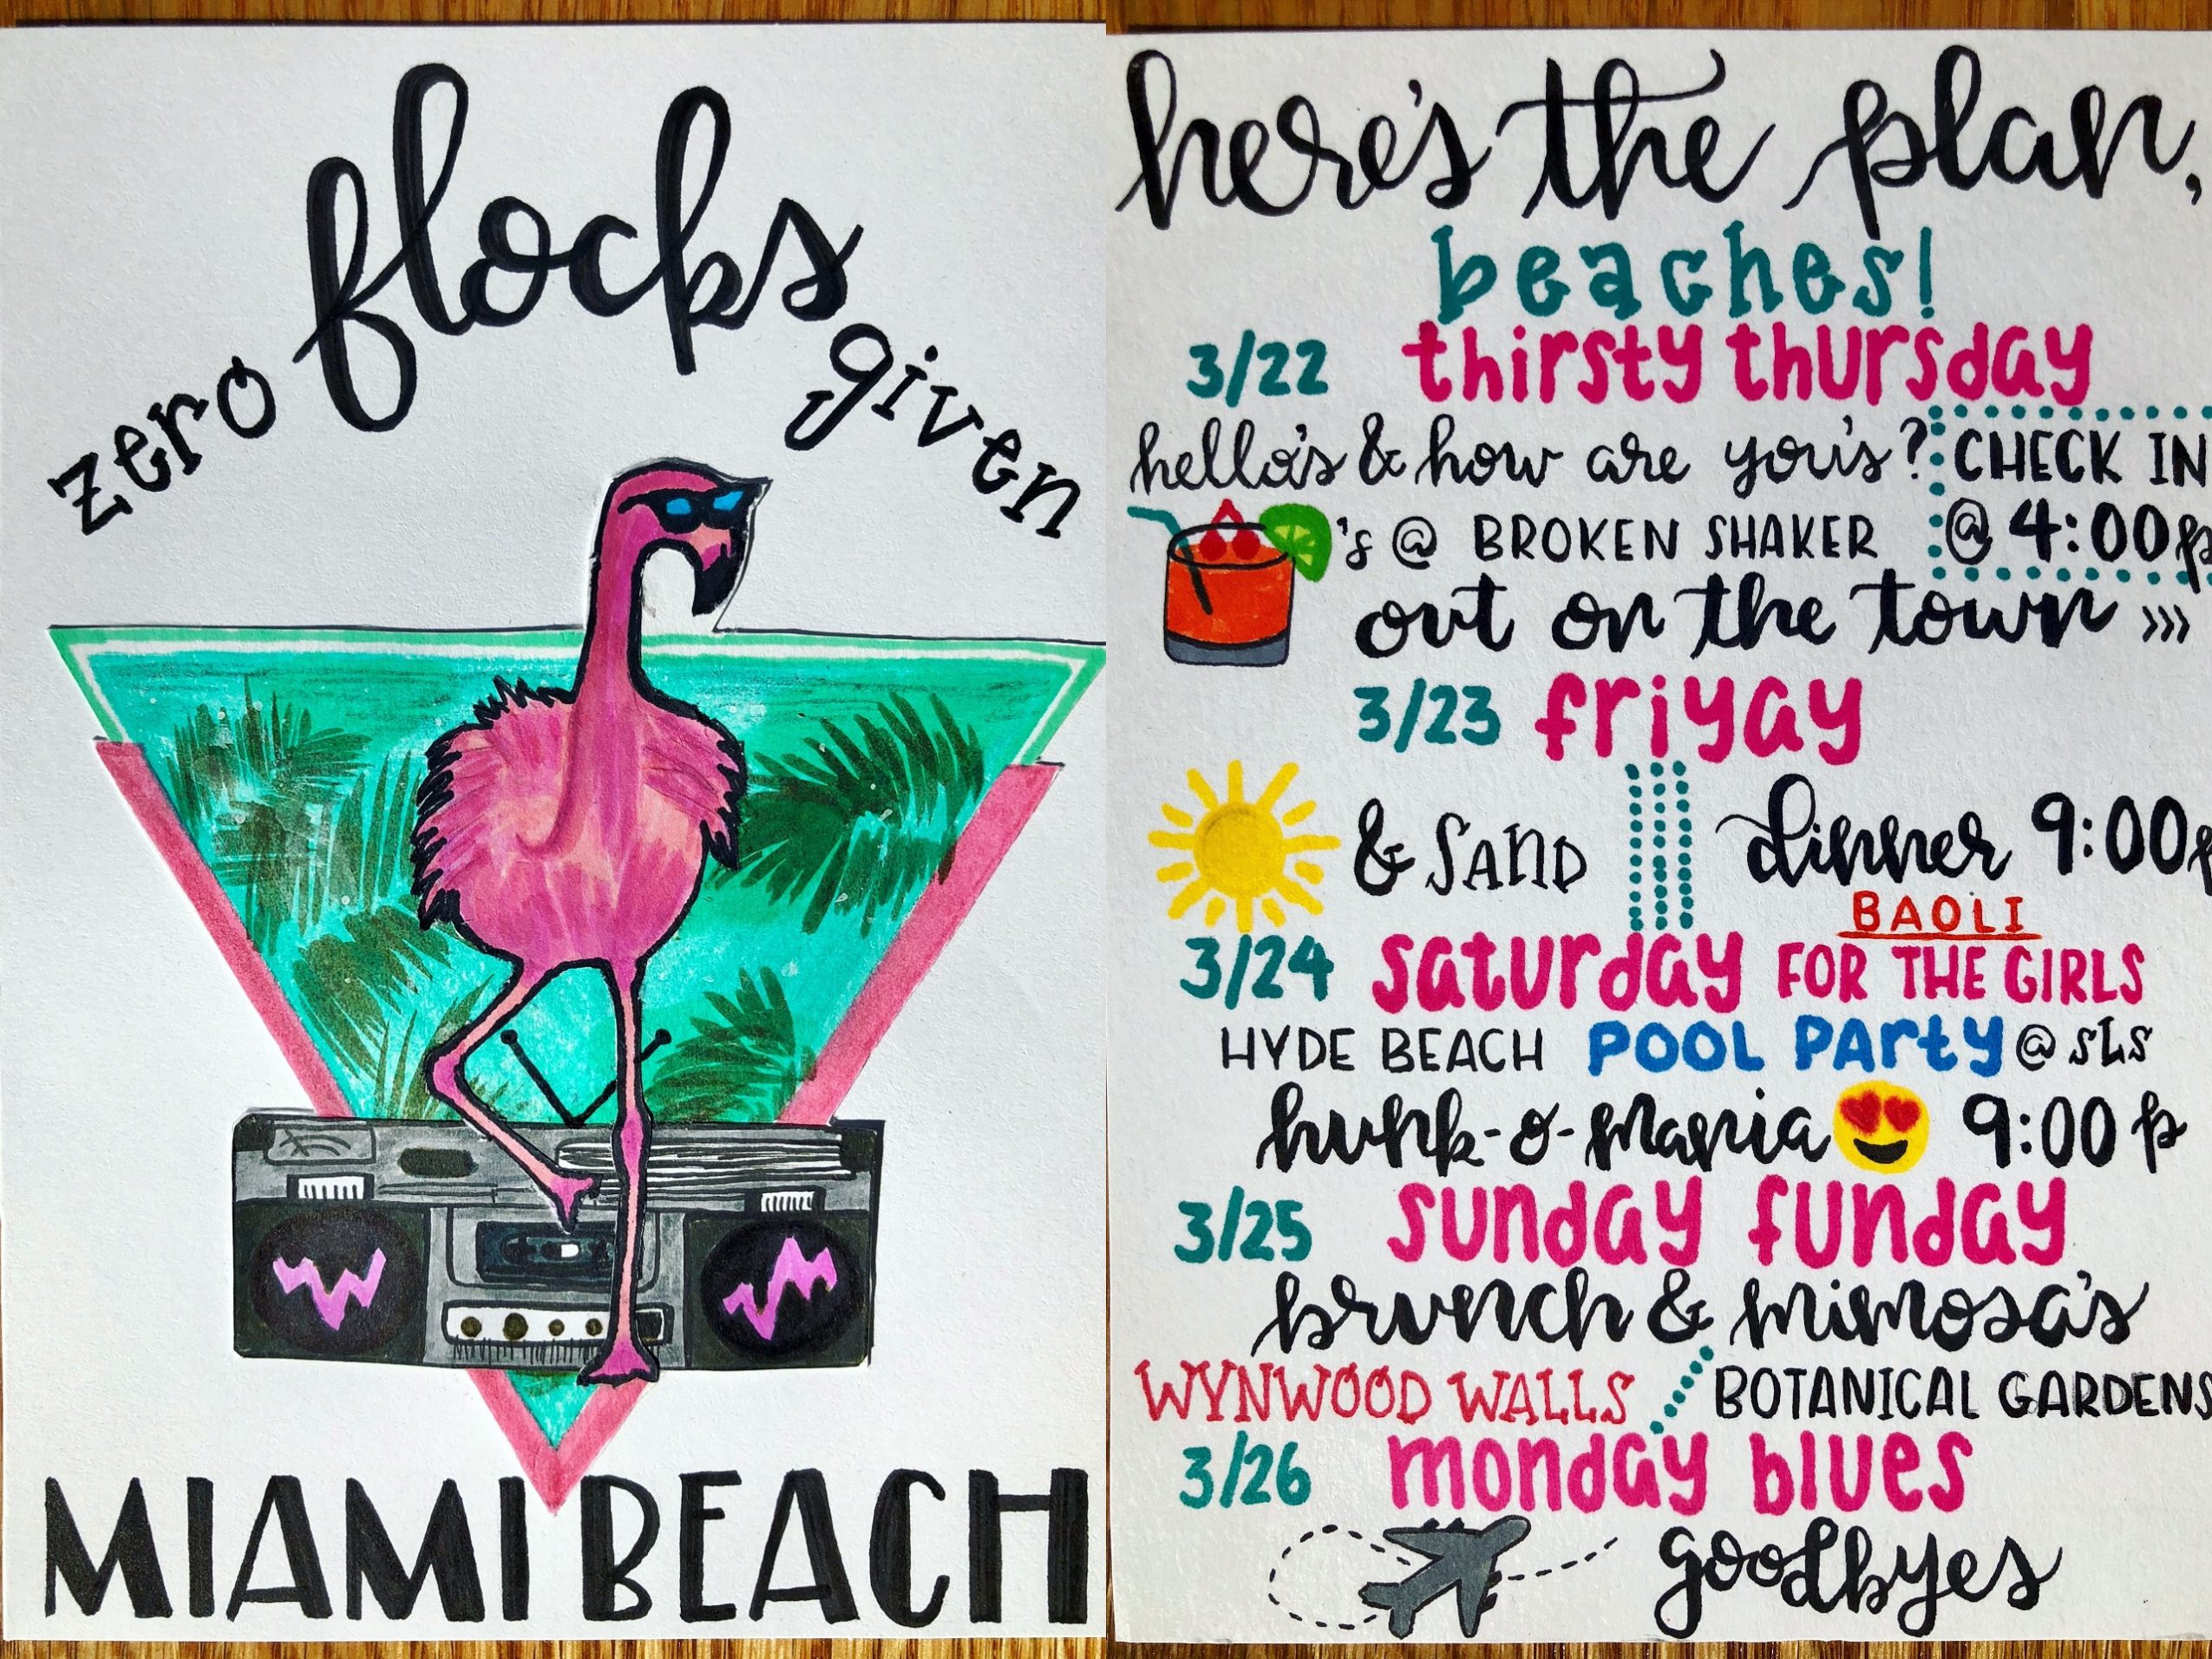 zero flocks given
MIAMI BEACH
here's the plan,
beaches!
3/22 thirsty thursday
hello's & how are you's? CHECK IN
's @ BROKEN SHAKER @ 4:00p
out on the town >>>
3/23 friyay
& SAND dinner 9:00p
BAOLI
3/24 saturday FOR THE GIRLS
HYDE BEACH POOL PARTY @ SLS
hunk-o-mania 9:00 p
3/25 sunday funday
brunch & mimosa's
WYNWOOD WALLS BOTANICAL GARDENS
3/26 monday blues
goodbyes